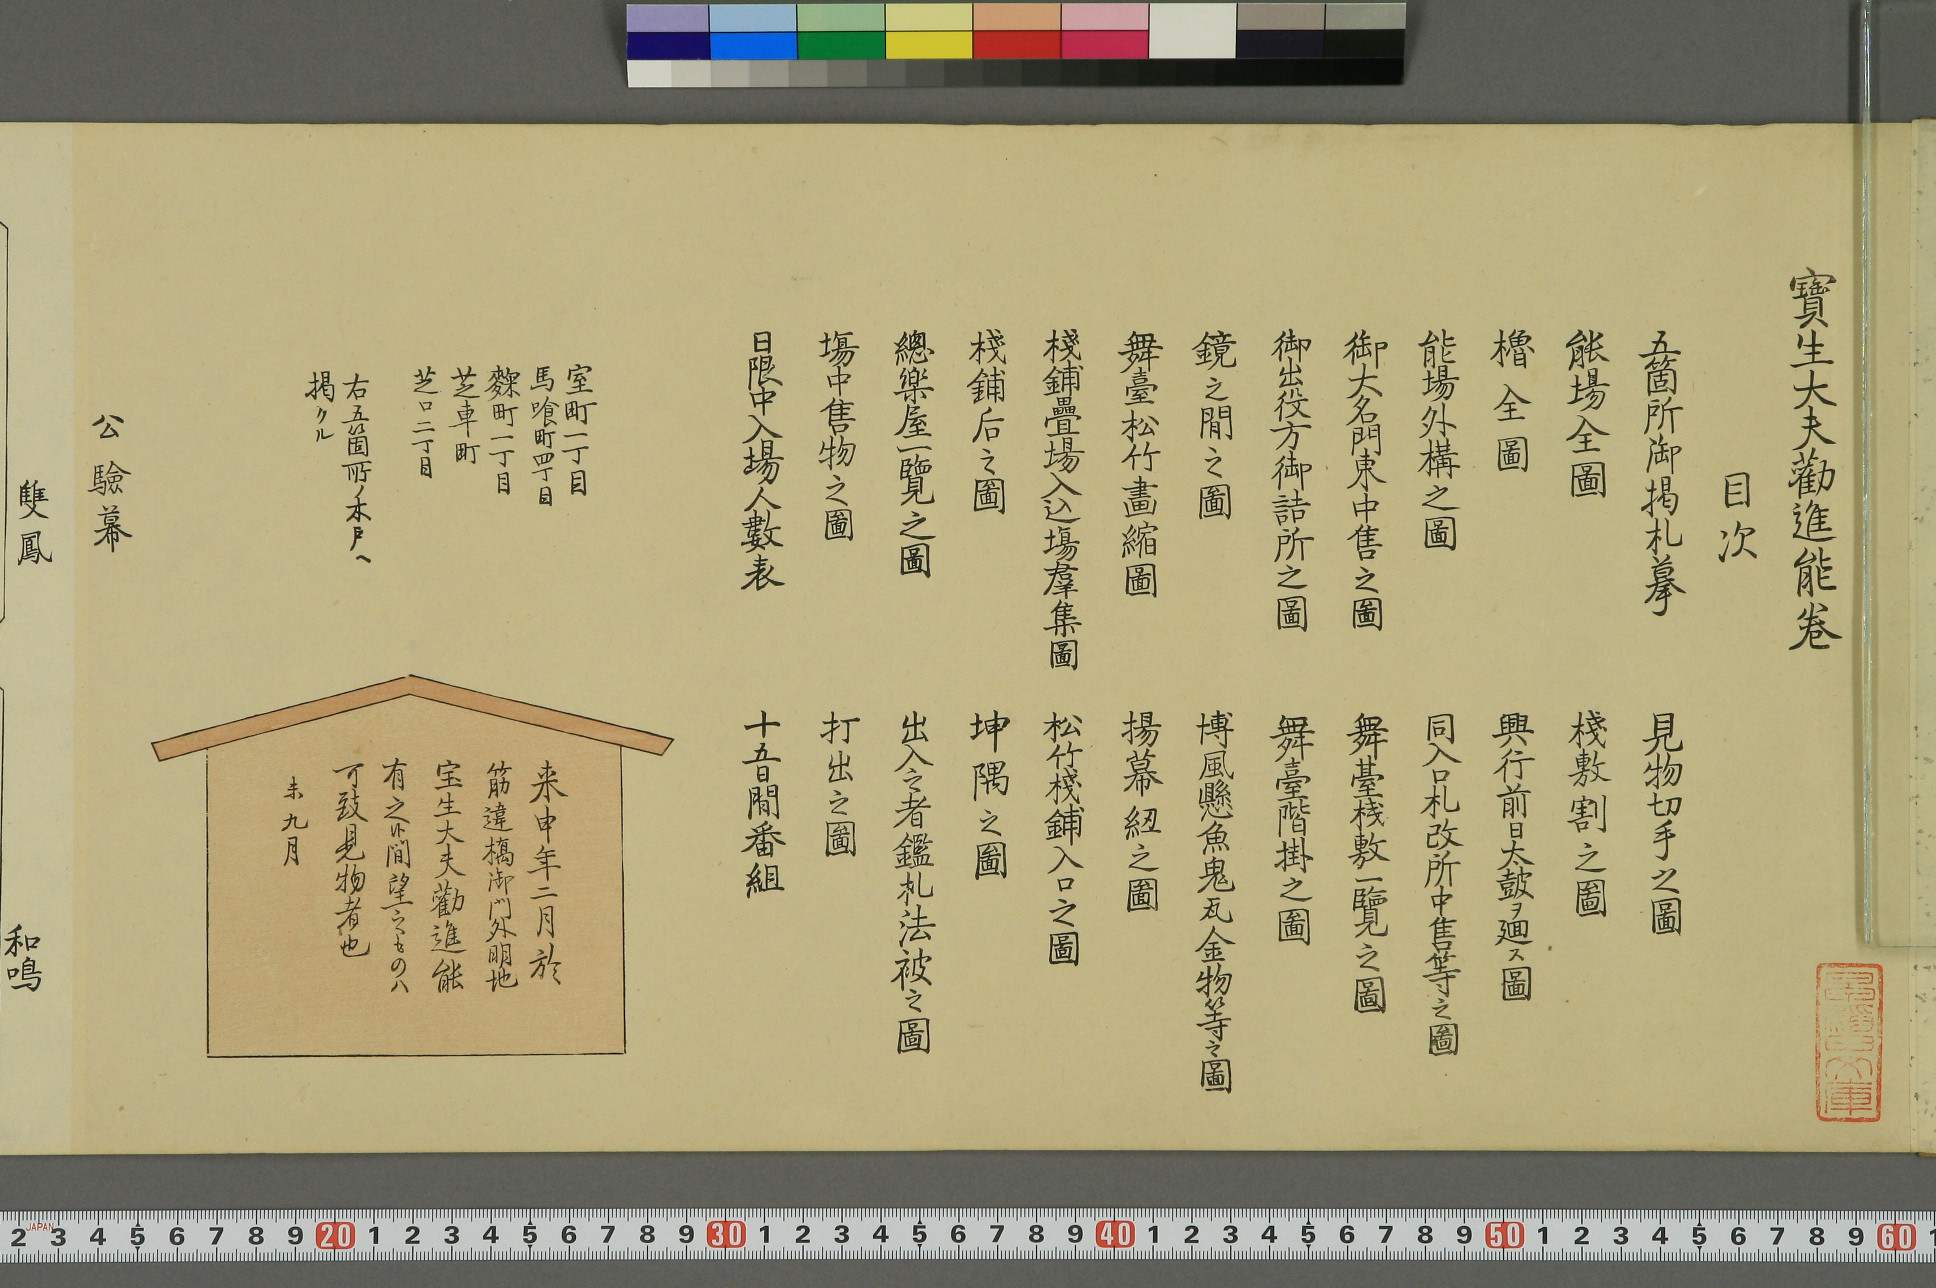 寶生大夫勸進能卷
目次
五箇所御揭札摹
能場全圖
櫓全圖
能場外構之圖
御大名門東中售之圖
御出役方御詰所之圖
鏡之間之圖
舞臺松竹畫縮圖
棧鋪疊場入込場羣集圖
棧鋪后之圖
總樂屋一覽之圖
場中售物之圖
日限中入場人數表
見物切手之圖
棧敷割之圖
興行前日太鼓ヲ廻ス圖
同入口札改所中售等之圖
舞臺棧敷一覽之圖
舞臺階掛之圖
博風懸魚鬼瓦金物等之圖
揚幕紐之圖
松竹棧鋪入口之圖
坤隅之圖
出入之者鑑札法被之圖
打出之圖
十五日間番組
室町一丁目
馬喰町四丁目
麴町一丁目
芝車町
芝口二丁目
右五箇所ノ木戸ヘ
揭クル
来申年二月於
筋違橋御門外明地
宝生大夫勸進能
有之候間望之ものハ
可致見物者也
未九月
公驗幕
雙鳳
和鳴
2 JAPAN 3 4 5 6 7 8 9 20 1 2 3 4 5 6 7 8 9 30 1 2 3 4 5 6 7 8 9 40 1 2 3 4 5 6 7 8 9 50 1 2 3 4 5 6 7 8 9 60 1